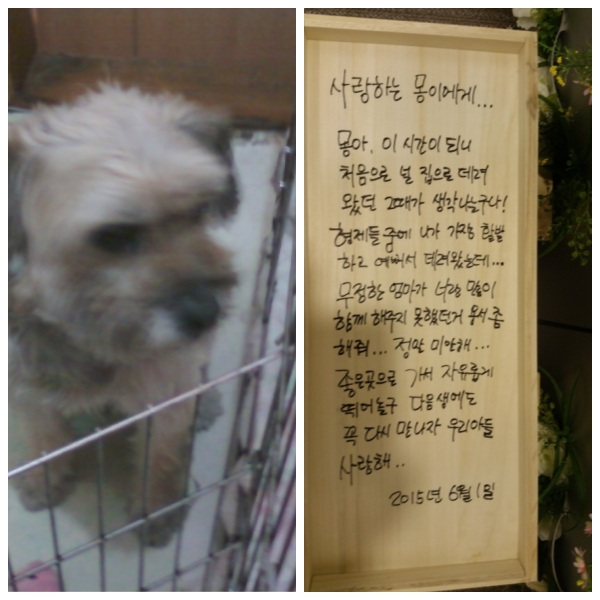 사랑하는 몽이에게...
몽아. 이 시간이 되니
처음으로 널 집으로 데려
왔던 그때가 생각나는구나!
형제들 중에 니가 가장 활발
하고 예뻐서 데려왔는데...
무정한 엄마가 너랑 많이
함께 해주지 못했던거 용서 좀
해줘... 정말 미안해...
좋은곳으로 가서 자유롭게
뛰어놀구 다음 생에도
꼭 다시 만나자 우리아들
사랑해..
2015년 6월 1일